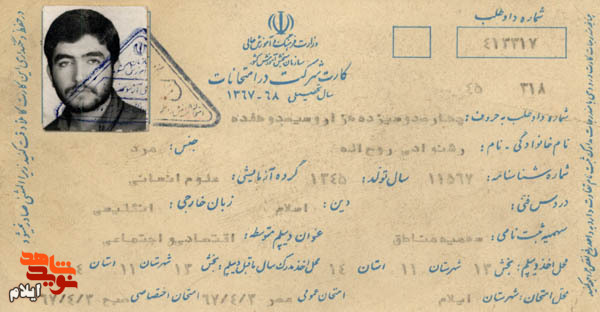 شماره داوطلب
۴۱۳۳۱۷
وزارت فرهنگ و آموزش عالی
سازمان سنجش آموزش کشور
کارت شرکت در امتحانات
سال تحصیلی ۶۸-۱۳۶۷
۳۱۸ ۴۵
شماره داوطلب به حروف: چهارصدوسیزده هزاروسیصدوهفده
نام خانوادگی - نام: روح اله جنس: مرد
شماره شناسنامه: ۱۱۵۶۷ سال تولد: ۱۳۴۵ گروه آزمایشی: علوم انسانی
دروس فنی: دین: اسلام زبان خارجی: انگلیسی
سهمیه ثبت نامی: سهمیه مناطق عنوان دیپلم متوسطه: اقتصادی و اجتماعی
محل اخذ دیپلم: بخش ۱۳ شهرستان ۱۱ استان ۱۴ محل اخذ مدرک سال ماقبل دیپلم: بخش ۱۳ شهرستان ۱۱ استان
محل امتحان: شهرستان ایلام امتحان عمومی عصر ۶۷/۴/۳ امتحان اختصاصی صبح ۶۷/۴/۳
نوید شاهد
ایلام